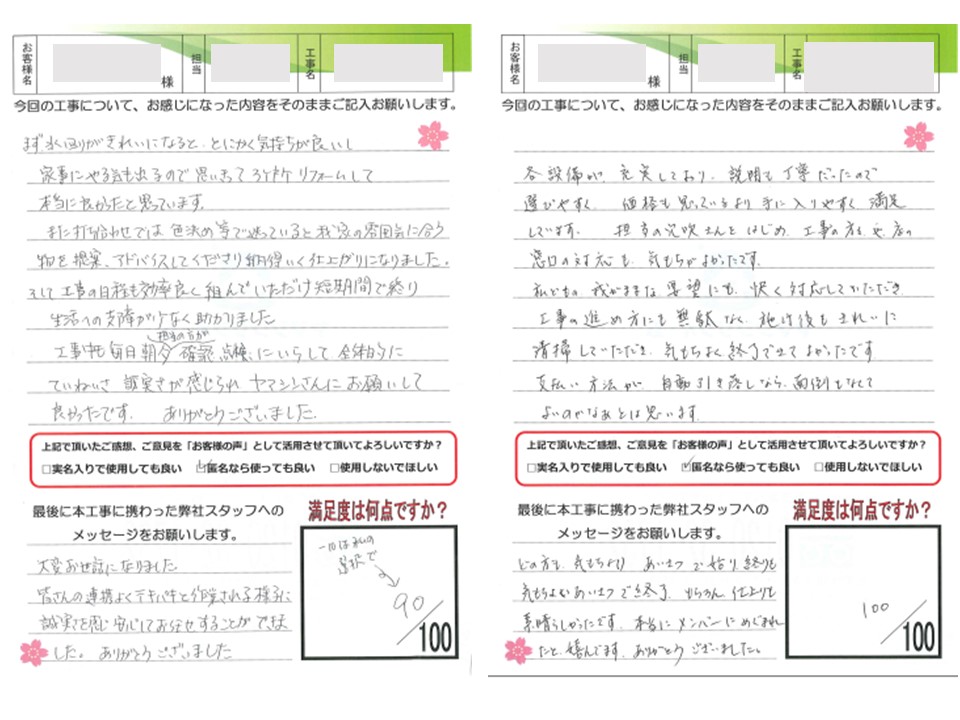 お客様名
様
担当
工事名
今回の工事について、お感じになった内容をそのままご記入お願いします。
まず水回りがきれいになると、とにかく気持ちが良いし
家事にやる気も出るので思い切って3ヶ所リフォームして
本当に良かったと思っています。
また打ち合わせでは色決め等で迷っていると我家の雰囲気に合う
物を提案、アドバイスしてくださり納得いく仕上がりになりました。
そして工事の日程も効率良く組んでいただけ短期間で終り
生活への支障が少なく助かりました
担当の方が
工事中も毎日朝夕確認、点検、にいらして全体的に
ていねいさ誠実さが感じられヤマシンさんにお願いして
良かったです。ありがとうございました。
上記で頂いたご感想、ご意見を「お客様の声」として活用させて頂いてよろしいですか?
□実名入りで使用しても良い ☑匿名なら使っても良い □使用しないでほしい
最後に本工事に携わった弊社スタッフへの
メッセージをお願いします。
大変お世話になりました
皆さんの連携よくテキパキと作業される様子に
誠実さを感じ安心してお任せすることができま
した。ありがとうございました
満足度は何点ですか?
-10は私の
選択で
90/100
お客様名
様
担当
工事名
今回の工事について、お感じになった内容をそのままご記入お願いします。
各設備が、充実しており、説明も丁寧だったので
選びやすく、価格も思っているより手に入りやすく満足
しています。担当の さんをはじめ、工事の方、 店の
窓口の対応も、気もちがよかったです。
私どもの我がままな要望にも、快く対応していただき
工事の進め方にも無駄なく、施行後もきれいに
清掃していただき、気もちよく終了できてよかったです
支払い方法が、自動引き落しなら、面倒もなくて
よいのかなあとは思います。
上記で頂いたご感想、ご意見を「お客様の声」として活用させて頂いてよろしいですか?
□実名入りで使用しても良い ☑匿名なら使っても良い □使用しないでほしい
最後に本工事に携わった弊社スタッフへの
メッセージをお願いします。
どの方も、気もちよい あいさつで始り、終りも
気もちよいあいさつで終了、もちろん仕上りも
素晴らしかったです。本当にメンバーにめぐまれ
たと、喜んでます。ありがとうございました。
満足度は何点ですか?
100/100